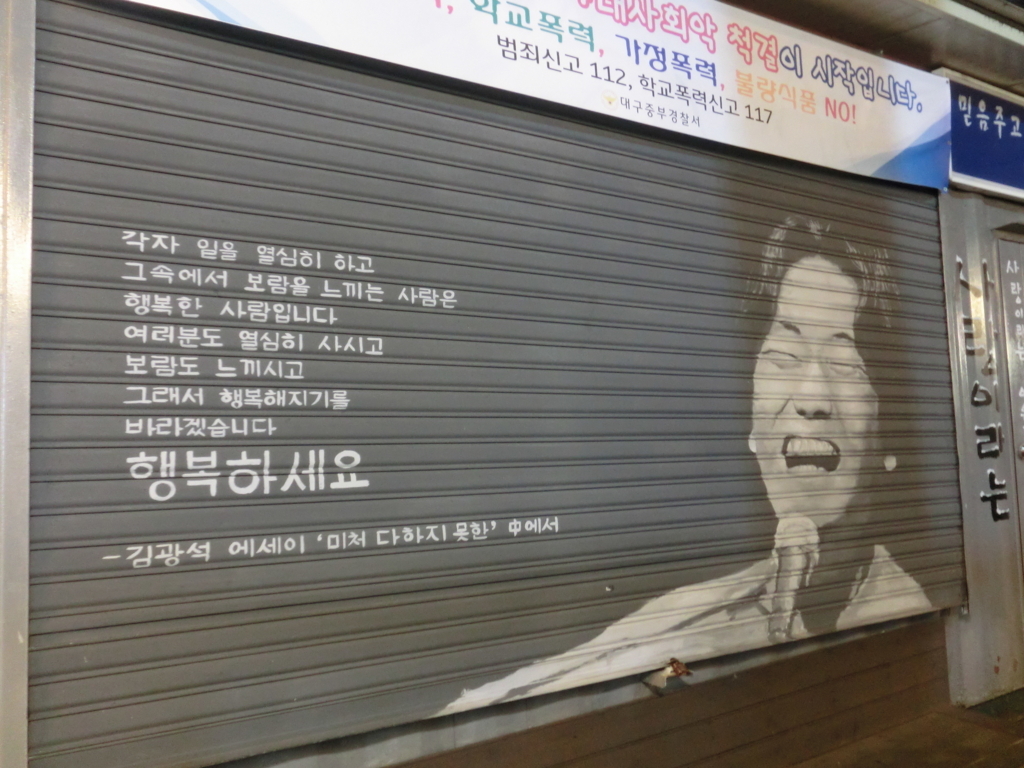 대사회악 척결이 시작입니다.
학교폭력, 가정폭력, 불량식품 NO!
범죄신고 112, 학교폭력신고 117
대구중부경찰서
믿음주고
각자 일을 열심히 하고
그속에서 보람을 느끼는 사람은
행복한 사람입니다
여러분도 열심히 사시고
보람도 느끼시고
그래서 행복해지기를
바라겠습니다
행복하세요
-김광석 에세이 '미처 다하지 못한' 中에서